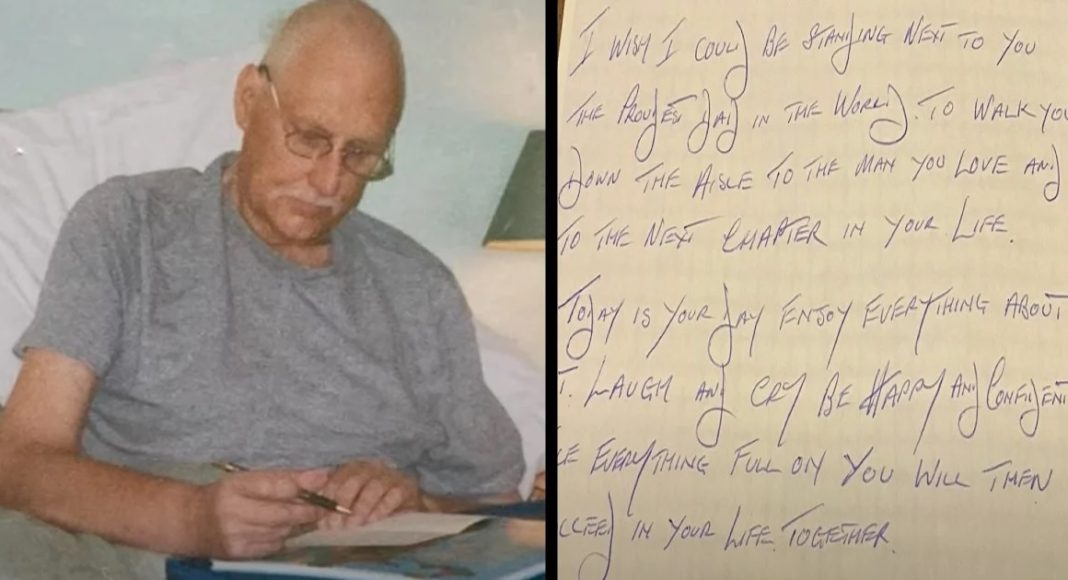 I WISH I COULD BE STANDING NEXT TO YOU
THE PROUDEST DAD IN THE WORLD. TO WALK YOU
DOWN THE AISLE TO THE MAN YOU LOVE AND
TO THE NEXT CHAPTER IN YOUR LIFE.
TODAY IS YOUR DAY ENJOY EVERYTHING ABOUT
LAUGH AND CRY BE HAPPY AND CONFIDENT
EVERYTHING FULL ON YOU WILL THEN
IN YOUR LIFE TOGETHER.